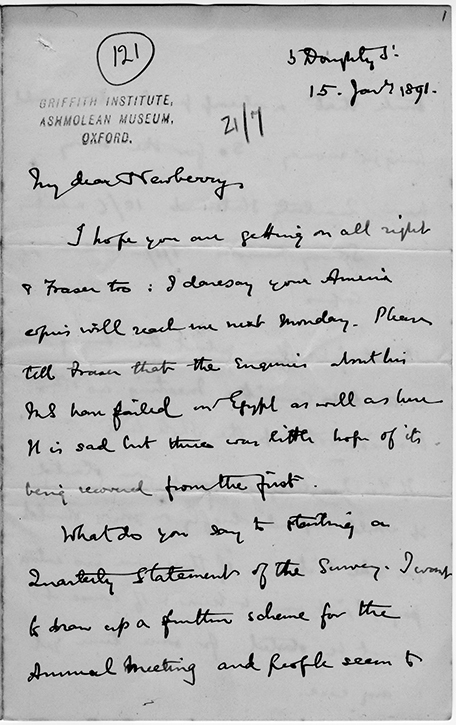 1
121
5 Doughty St.
15. Jany 1891.
GRIFFITH INSTITUTE,
ASHMOLEAN MUSEUM,
OXFORD.
21/7
My dear Newberry,
I hope you are getting on all right
& Fraser too: I daresay your Amenii
copies will reach me next Monday. Please
tell Fraser that the Enquiries about his
MS have failed in Egypt as well as here
It is sad but there was little hope of its
being recovered from the first.
What do you say to starting a
Quarterly Statement of the Survey. I want
to draw up a further scheme for the
Annual Meeting and People seem to